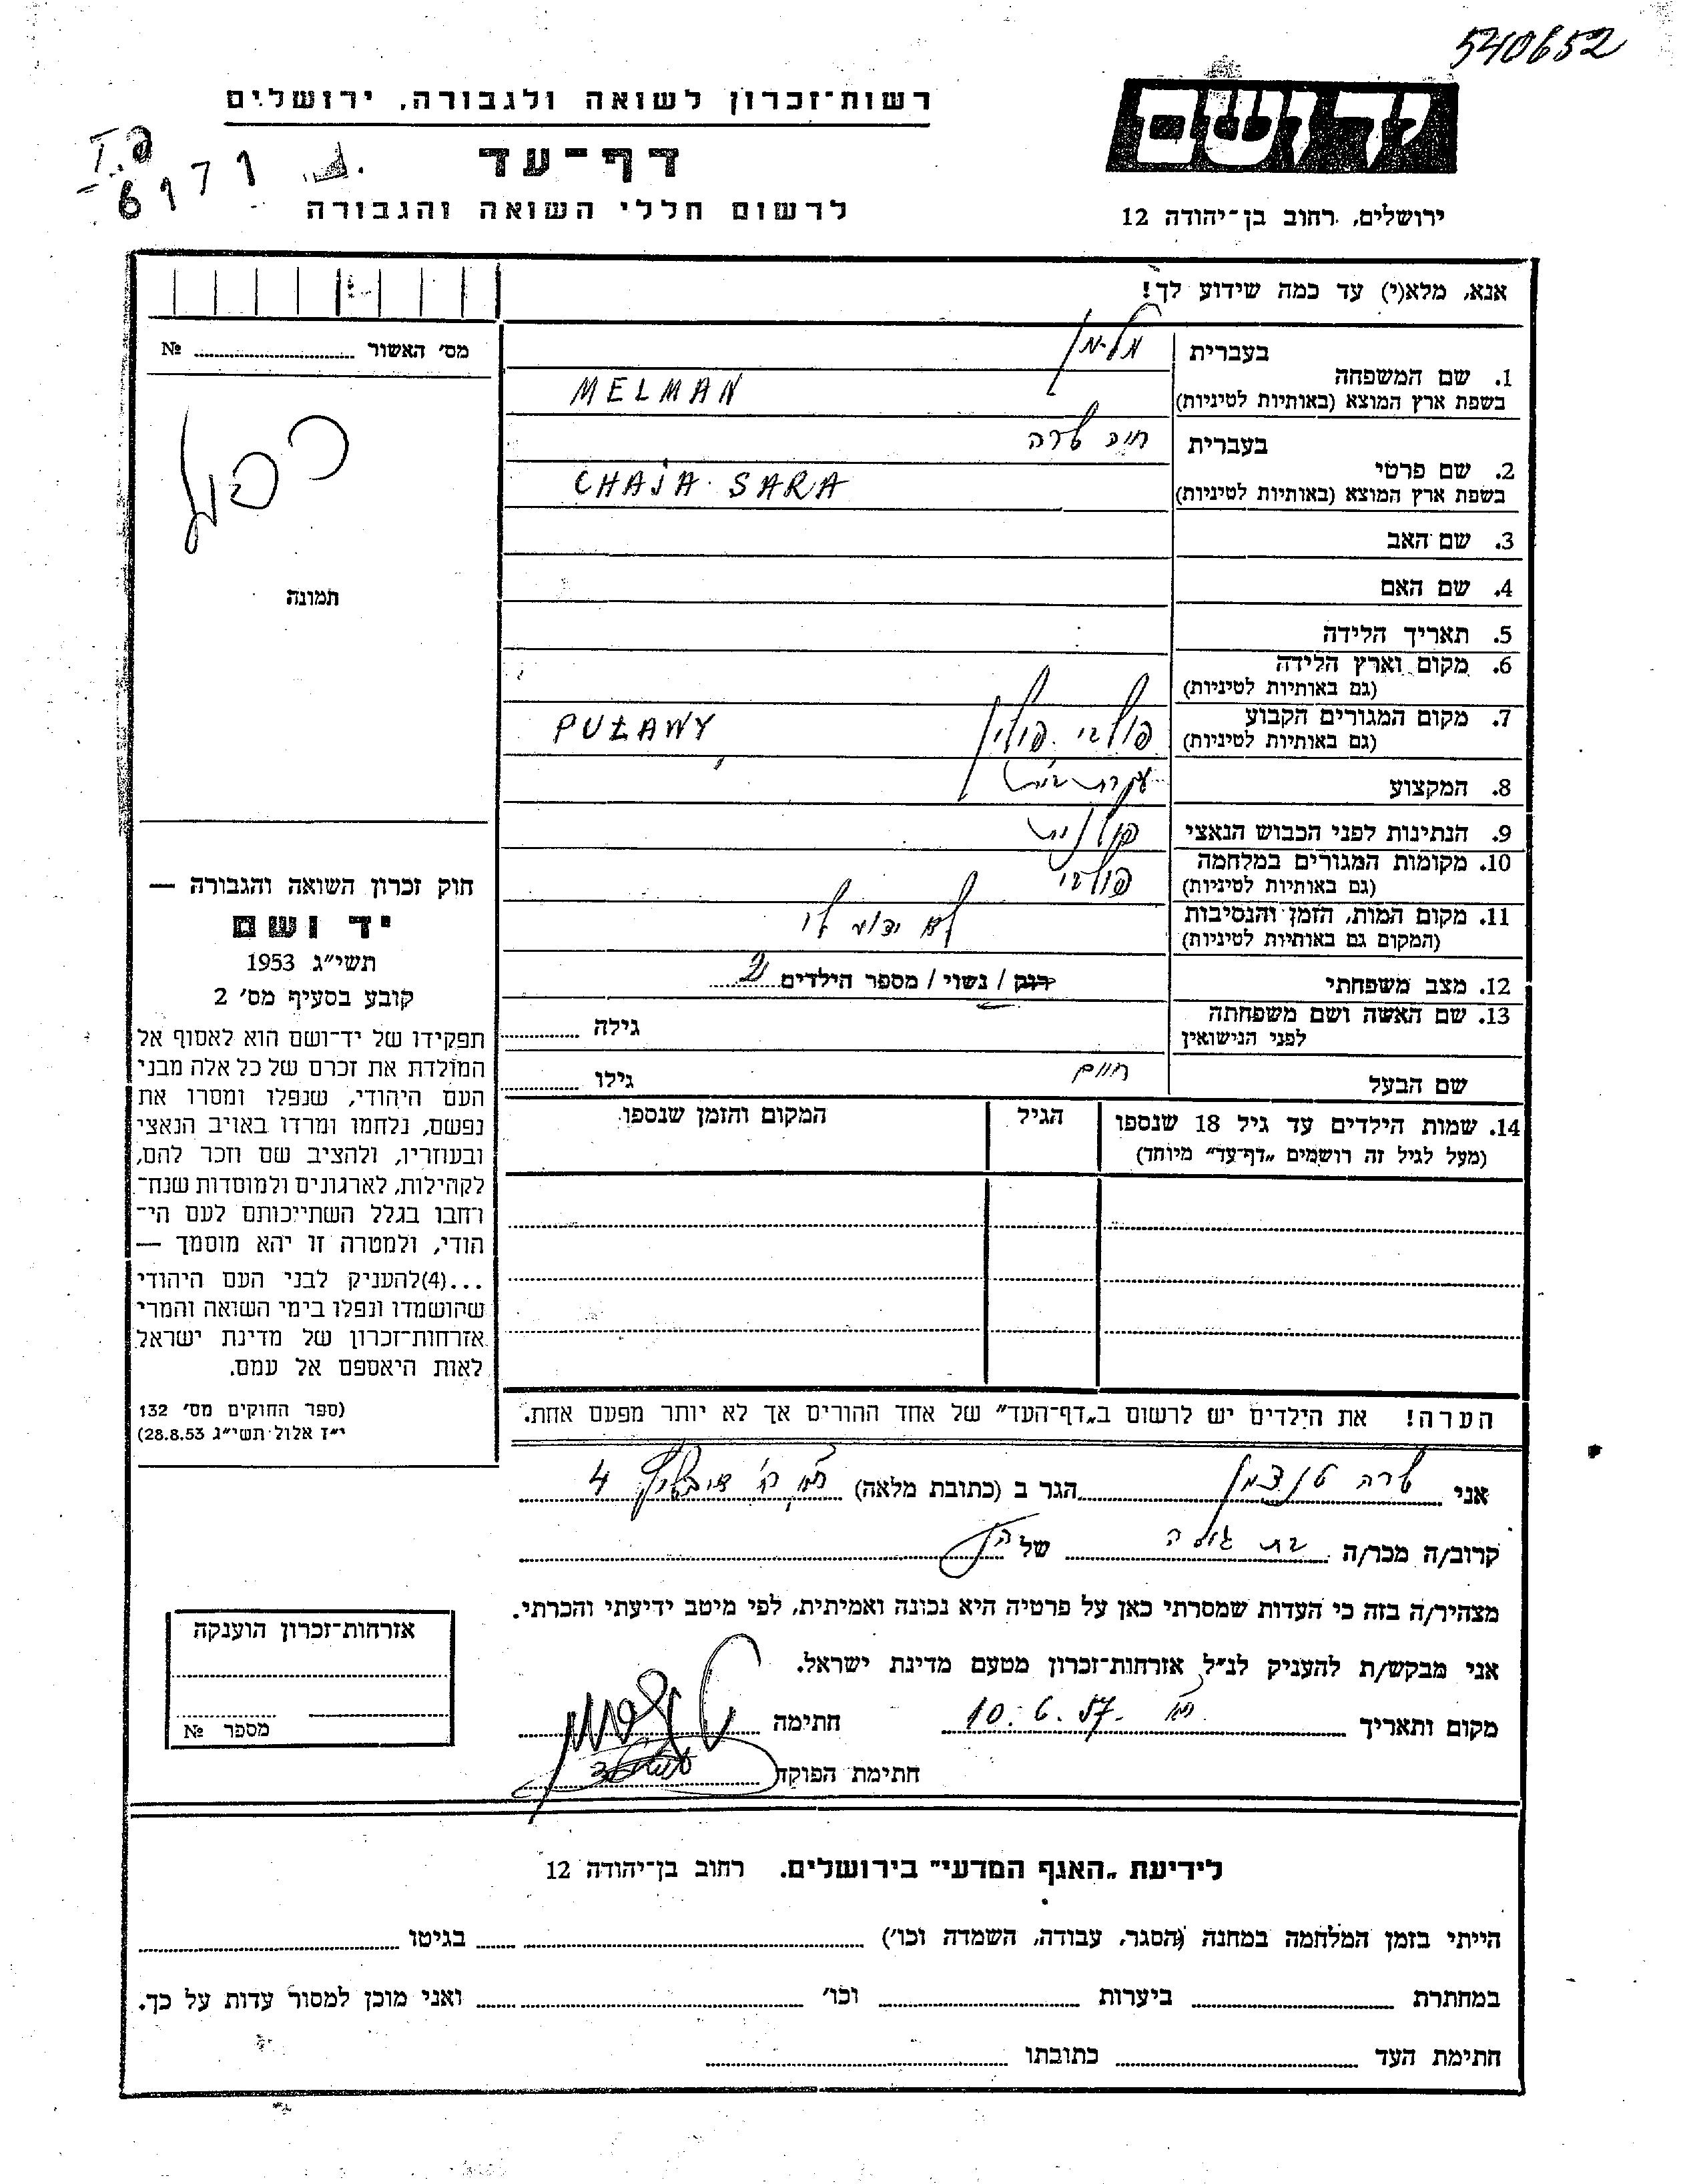 540652
יד ושם
רשות־זכרון לשואה ולגבורה, ירושלים
דף־עד
6171
לרשום חללי השואה והגבורה
ירושלים, רחוב בן־יהודה 12
אנא, מלא(י) עד כמה שידוע לך!
מס׳ האשור № 
כפול
תמונה
חוק זכרון השואה והגבורה —
יד ושם
תשי״ג 1953
קובע בסעיף מס׳ 2
תפקידו של יד־ושם הוא לאסוף אל
המולדת את זכרם של כל אלה מבני
העם היהודי, שנפלו ומסרו את
נפשם, נלחמו ומרדו באויב הנאצי
ובעוזריו, ולהציב שם וזכר להם,
לקהילות, לארגונים ולמוסדות שנח־
רחבו בגלל השתייכותם לעם הי־
הודי, ולמטרה זו יהא מוסמך —
...(4)להעניק לבני העם היהודי
שהושמדו ונפלו בימי השואה והמרי
אזרחות־זכרון של מדינת ישראל
לאות היאספם אל עמם.
(ספר החוקים מס׳ 132
י״ז אלול תשי״ג 28.8.53)
1. שם המשפחה
בעברית מלמן
בשפת ארץ המוצא (באותיות לטיניות) MELMAN
2. שם פרטי
בעברית חיה שרה
בשפת ארץ המוצא (באותיות לטיניות) CHAJA SARA
3. שם האב
4. שם האם
5. תאריך הלידה
6. מקום וארץ הלידה
(גם באותיות לטיניות)
7. מקום המגורים הקבוע פולבי פולין PUŁAWY
(גם באותיות לטיניות)
8. המקצוע עקרת בית
9. הנתינות לפני הכבוש הנאצי פולנית
10. מקומות המגורים במלחמה פולבי
(גם באותיות לטיניות)
11. מקום המות, הזמן והנסיבות לא ידוע לי
(המקום גם באותיות לטיניות)
12. מצב משפחתי רוק / נשוי / מספר הילדים 2
13. שם האשה ושם משפחתה גילה
לפני הנישואין
שם הבעל חיים גילו
14. שמות הילדים עד גיל 18 שנספו הגיל המקום והזמן שנספו
(מעל לגיל זה רושמים „דף־עד” מיוחד)
הערה! את הילדים יש לרשום ב„דף־העד” של אחד ההורים אך לא יותר מפעם אחת.
אני שרה הגר ב (כתובת מלאה) 4
קרוב/ה מכר/ה של
מצהיר/ה בזה כי העדות שמסרתי כאן על פרטיה היא נכונה ואמיתית, לפי מיטב ידיעתי והכרתי.
אני מבקש/ת להעניק לנ״ל אזרחות־זכרון מטעם מדינת ישראל.
מקום ותאריך 10.6.57 חתימה
חתימת הפוקד
אזרחות־זכרון הוענקה
מספר №
לידיעת „האגף המדעי” בירושלים. רחוב בן־יהודה 12
הייתי בזמן המלחמה במחנה (הסגר, עבודה, השמדה וכו׳) בגיטו
במחתרת ביערות וכו׳ ואני מוכן למסור עדות על כך.
חתימת העד כתובתו